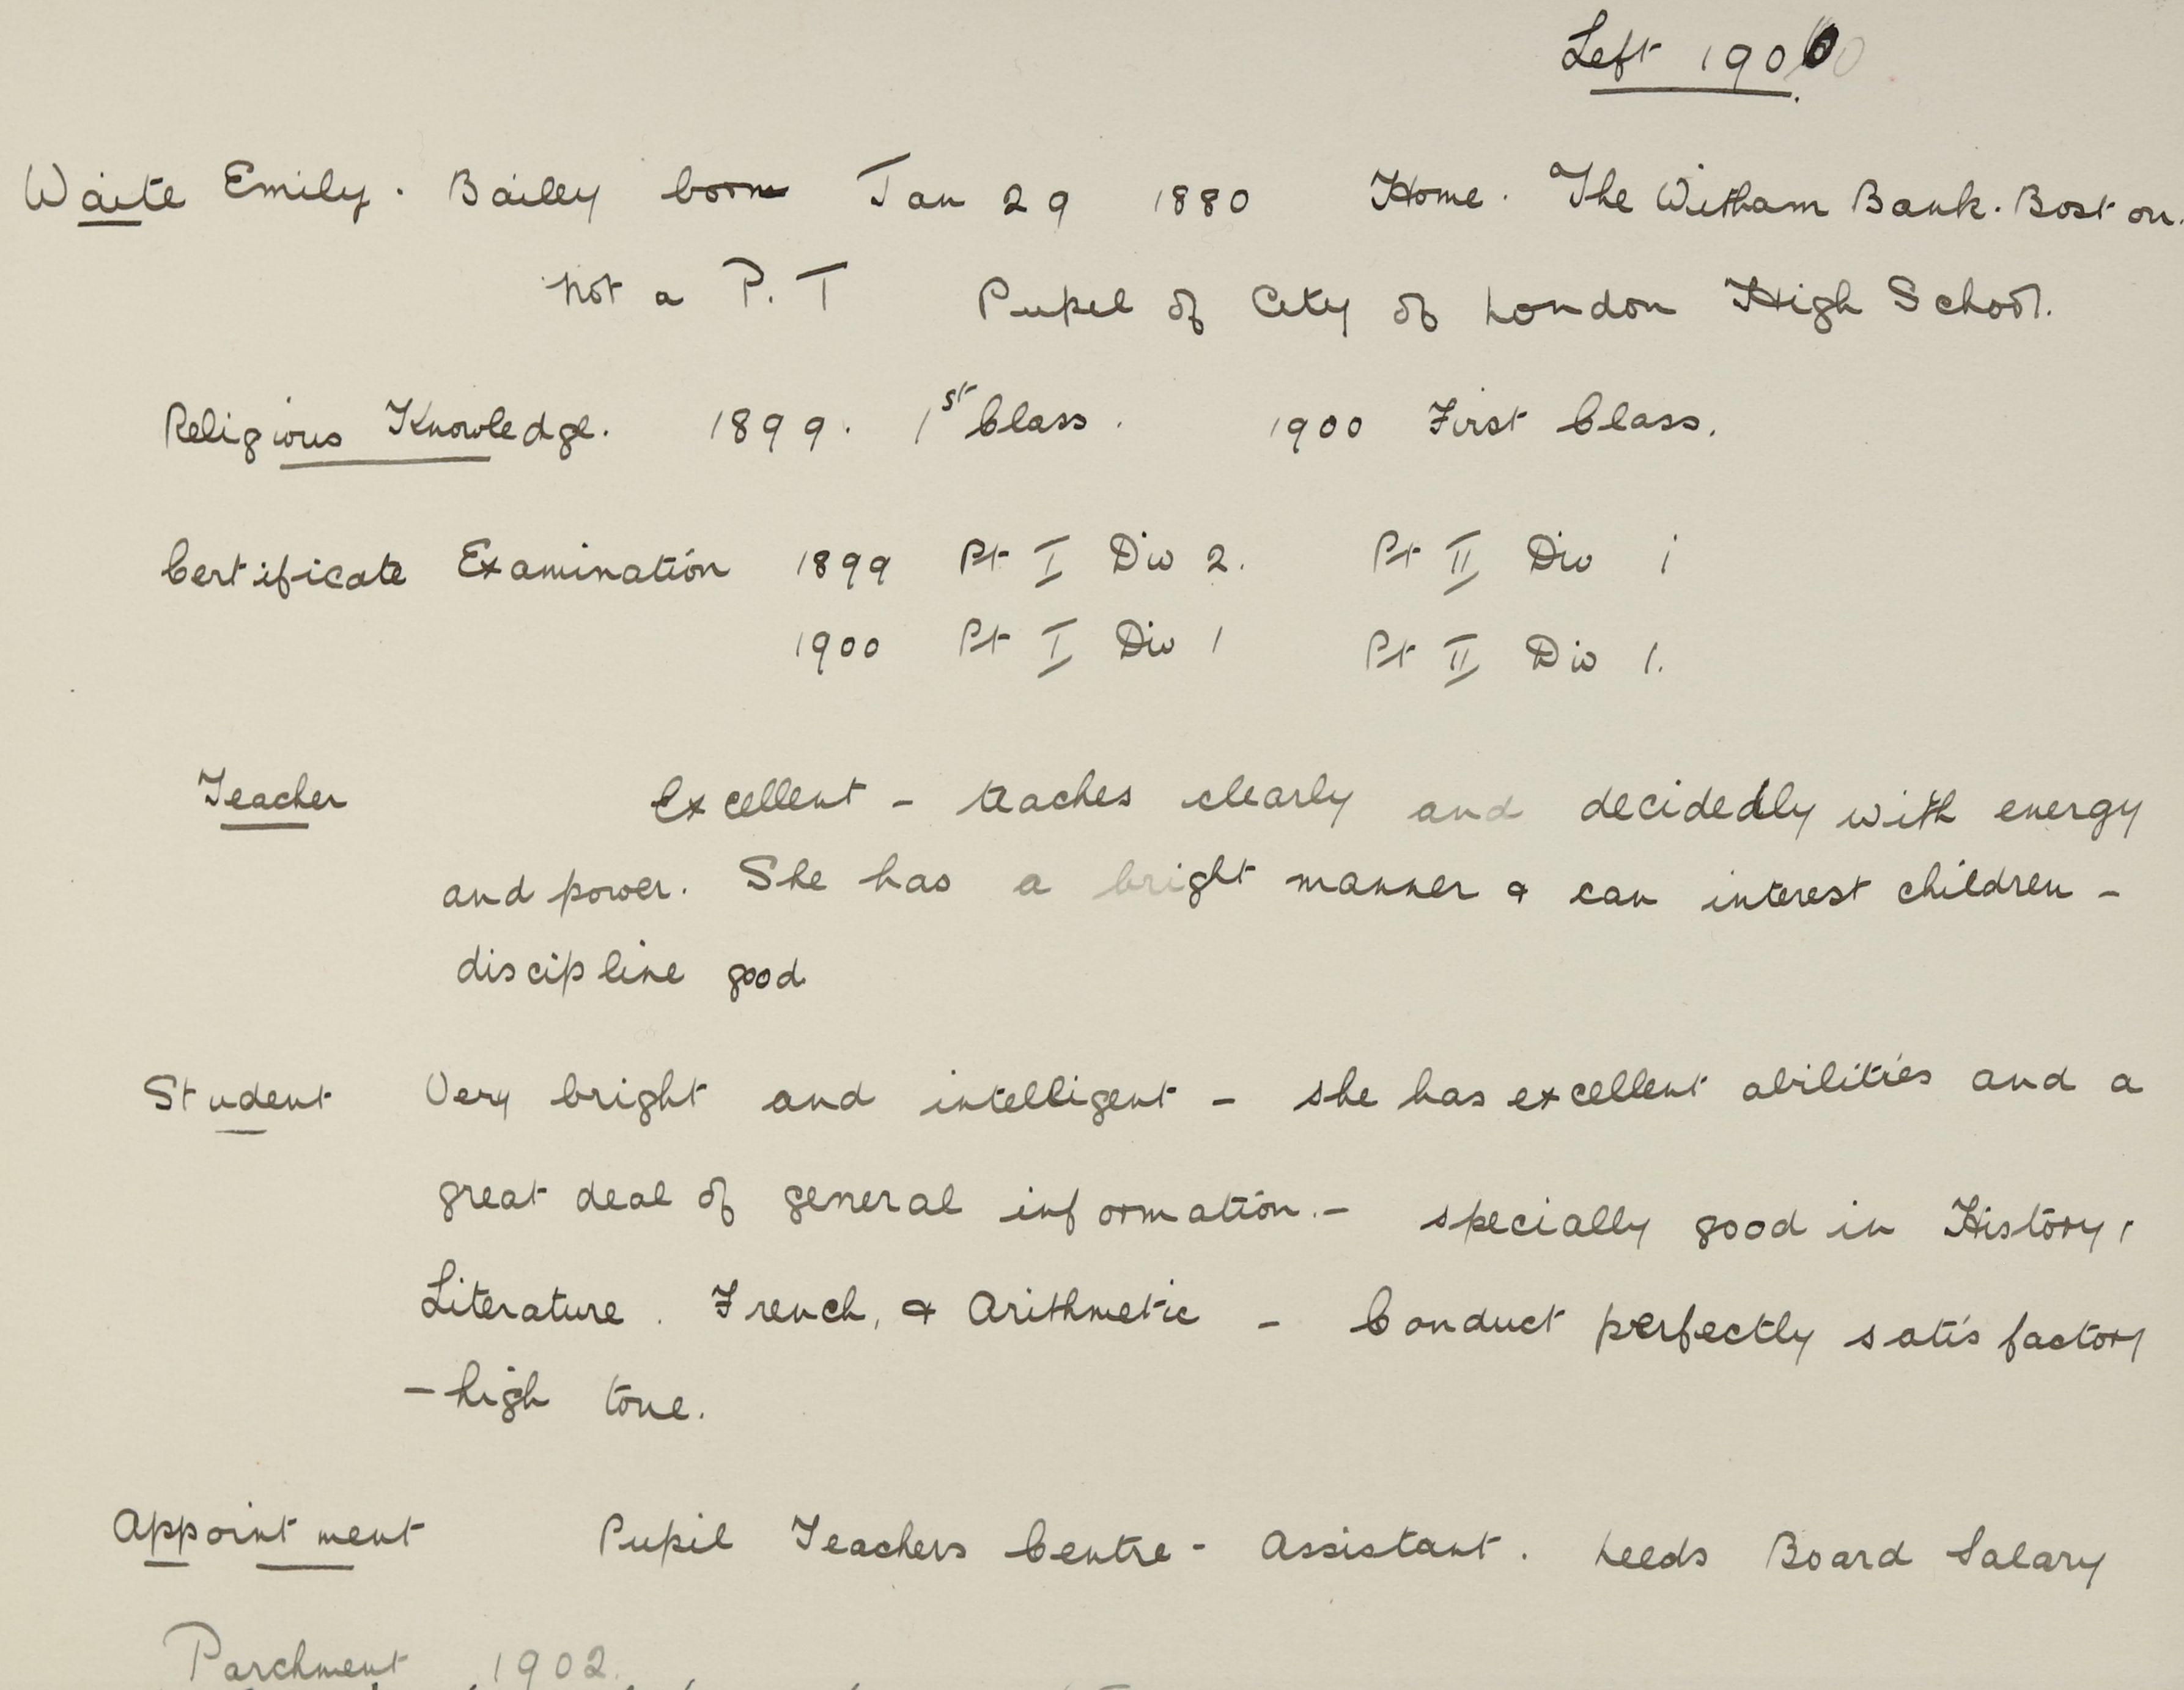 Left 1900
Waite Emily. Bailey born Jan 29 1880 Home. The Witham Bank. Boston.
not a P. T Pupil of City of London High School.
Religious Knowledge. 1899. 1st Class. 1900 First Class.
Certificate Examination 1899 Pt I Div 2. Pt II Div 1
1900 Pt I Div 1 Pt II Div 1.
Teacher Excellent - teaches clearly and decidedly with energy
and power. She has a bright manner & can interest children -
discipline good
Student Very bright and intelligent - she has excellent abilities and a
great deal of general information. - specially good in History,
Literature. French, & Arithmetic - Conduct perfectly satisfactory
- high tone.
Appointment Pupil Teachers Centre - Assistant. Leeds Board Salary
Parchment 1902.